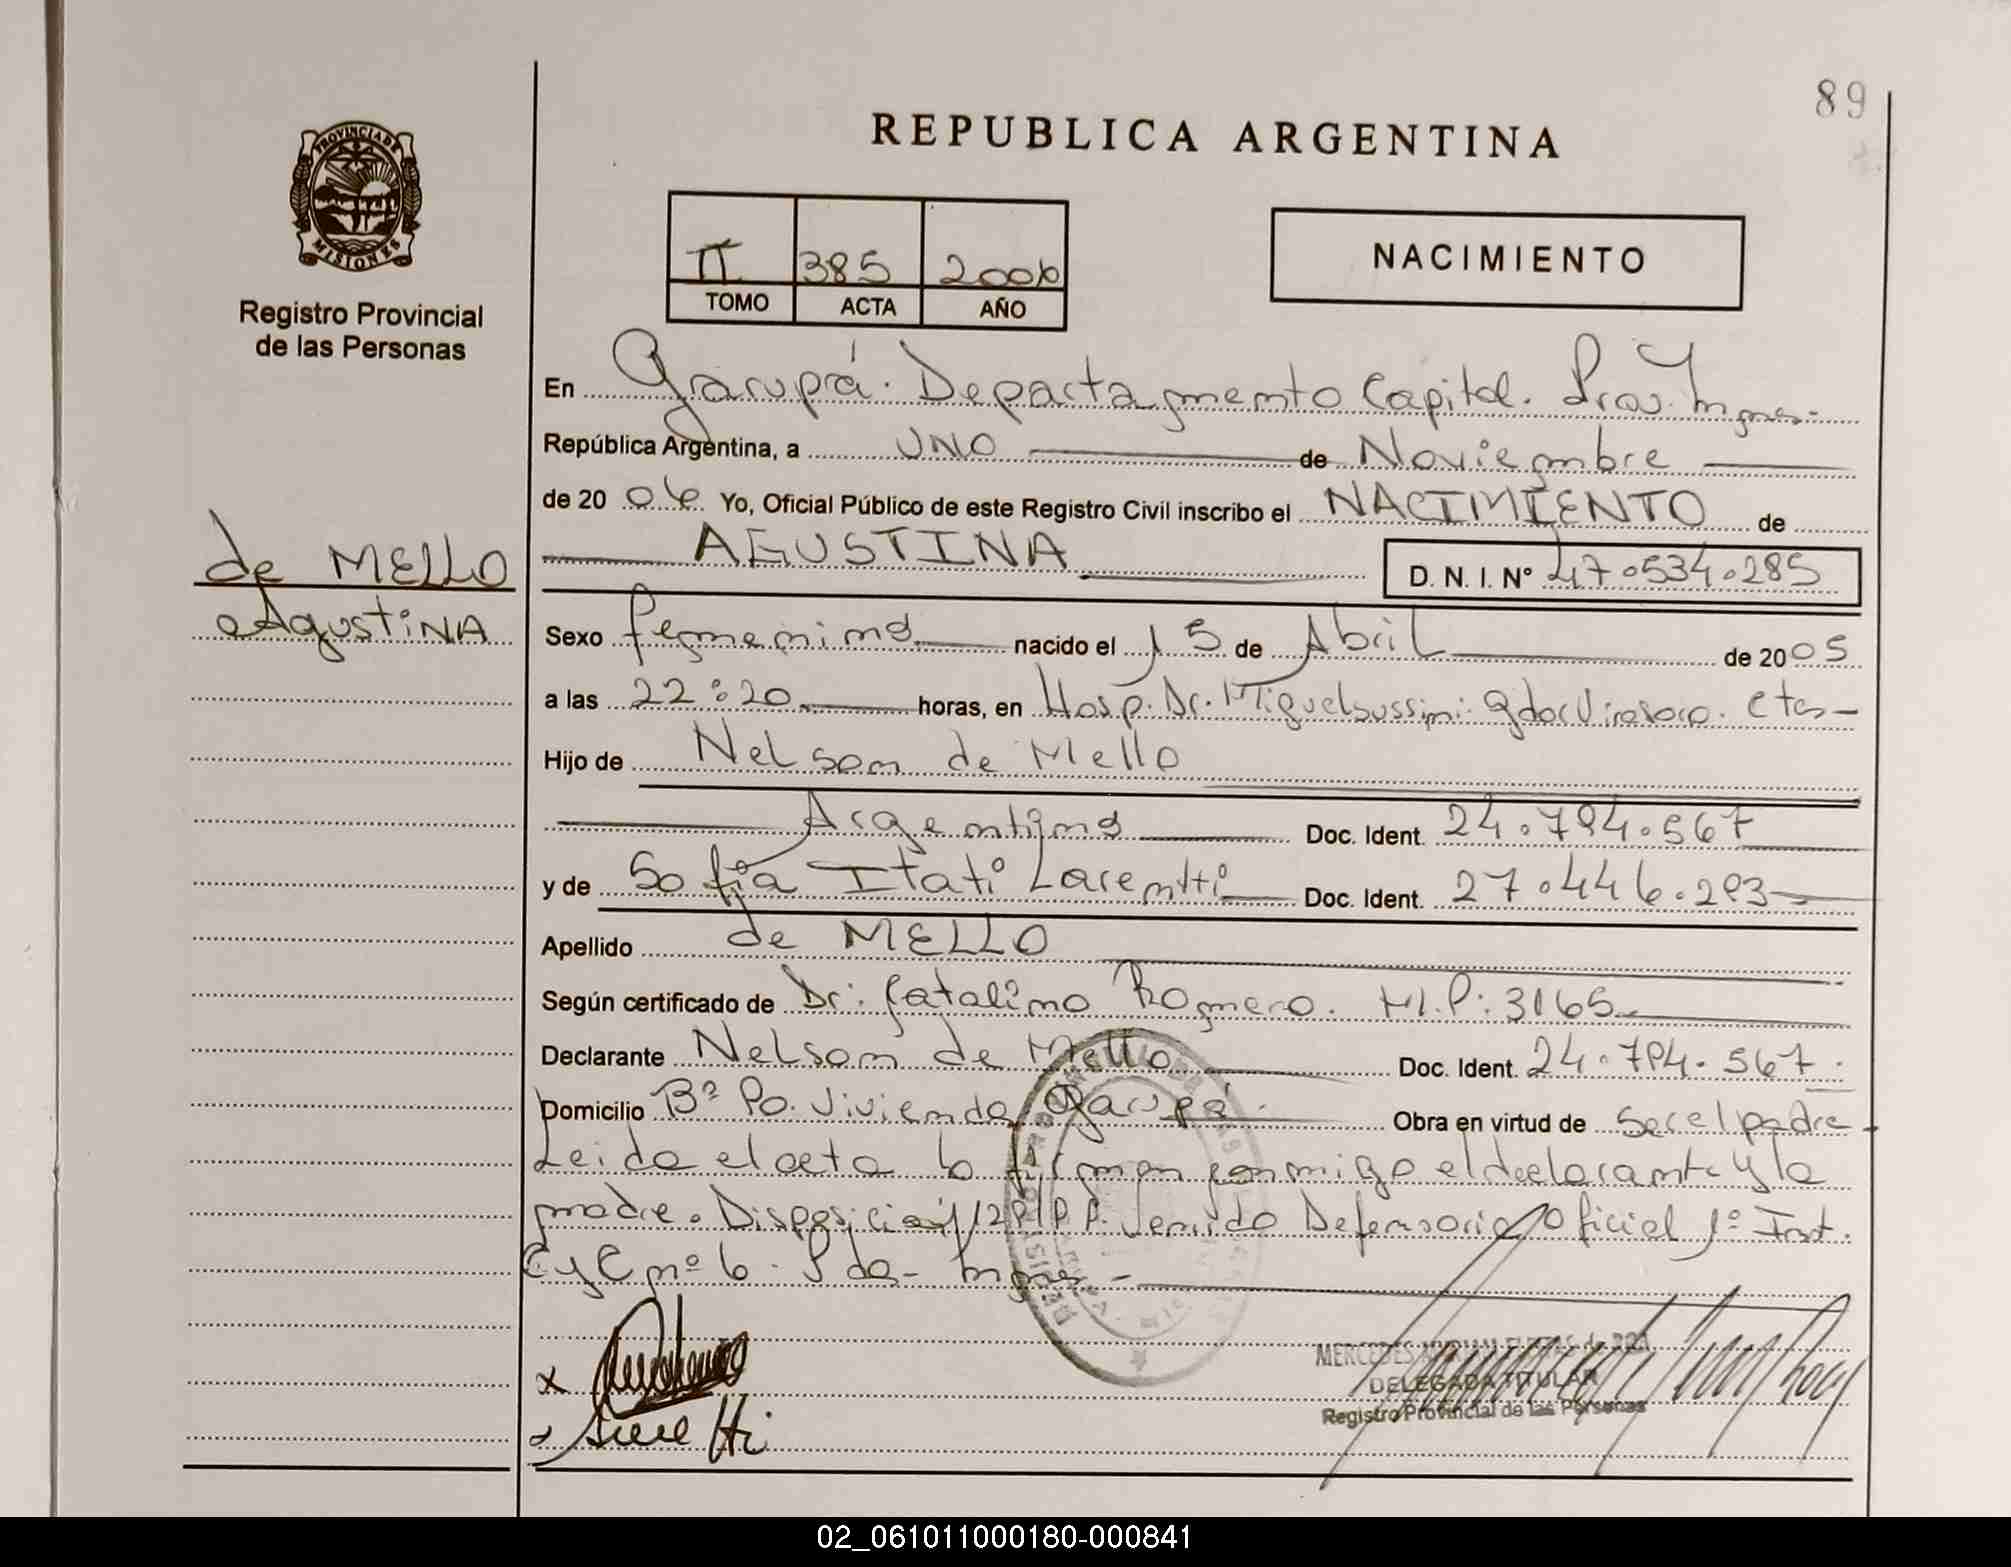 89
REPUBLICA ARGENTINA
PROVINCIA DE
MISIONES
Registro Provincial
de las Personas
II 385 2006
TOMO ACTA AÑO
NACIMIENTO
En Garupá. Departamento Capital. Prov. Mnes.-
República Argentina, a UNO de Noviembre
de 20 06 Yo, Oficial Público de este Registro Civil inscribo el NACIMIENTO de
AGUSTINA D. N. I. Nº 47.534.285
de MELLO
Agustina
Sexo femenino nacido el 15 de Abril de 2005
a las 22:20 horas, en Hosp. Dr. Miguel Sussini. Gdor Virasoro. Ctes-
Hijo de Nelson de Mello
Argentino Doc. Ident. 24.794.567
y de Sofía Itati Doc. Ident. 27.446.293
Apellido de MELLO
Según certificado de Dr. Catalino Romero. M.P: 3165
Declarante Nelson de Mello Doc. Ident. 24.794.567.
Domicilio Bº Po. Vivienda Garupá. Obra en virtud de ser el padre-
Leida el acta la firman conmigo el declarante y la
madre. Disposición Defensoria Oficial 1º Inst.
C y C nº 6. Pdas- Mnes-
DELEGADA TITULAR
Registro Provincial de las Personas
02_061011000180-000841